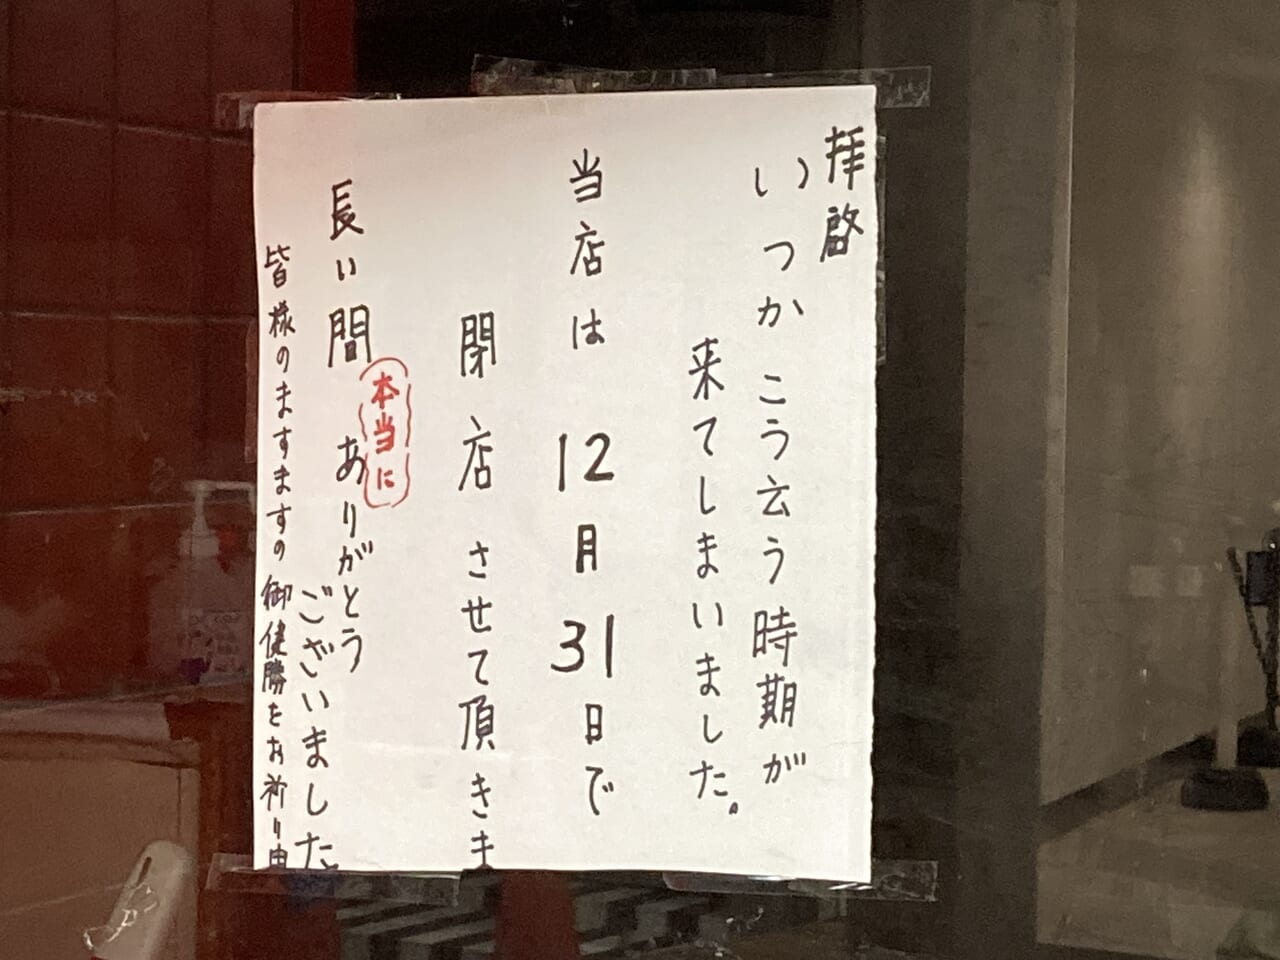 拝啓
いつかこう云う時期が
来てしまいました。
当店は12月31日で
閉店させて頂きま
本当に
長い間ありがとう
ございました
皆様のますますの御健勝をお祈り申